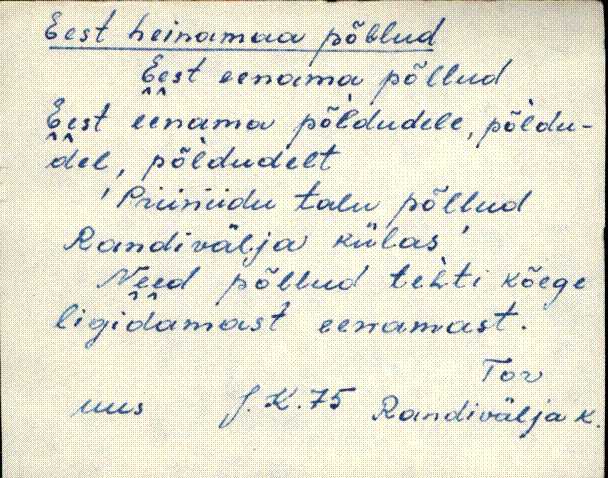 Eest heinamaa põllud
Eest eenama põllud
Eest eenama põldudele, põldu-
del, põldudelt
'Priiniidu talu põllud
Randivälja külas'
Need põllud tehti kõege
ligidamast eenamast.
Tor
uus J. K. 75 Randivälja k.